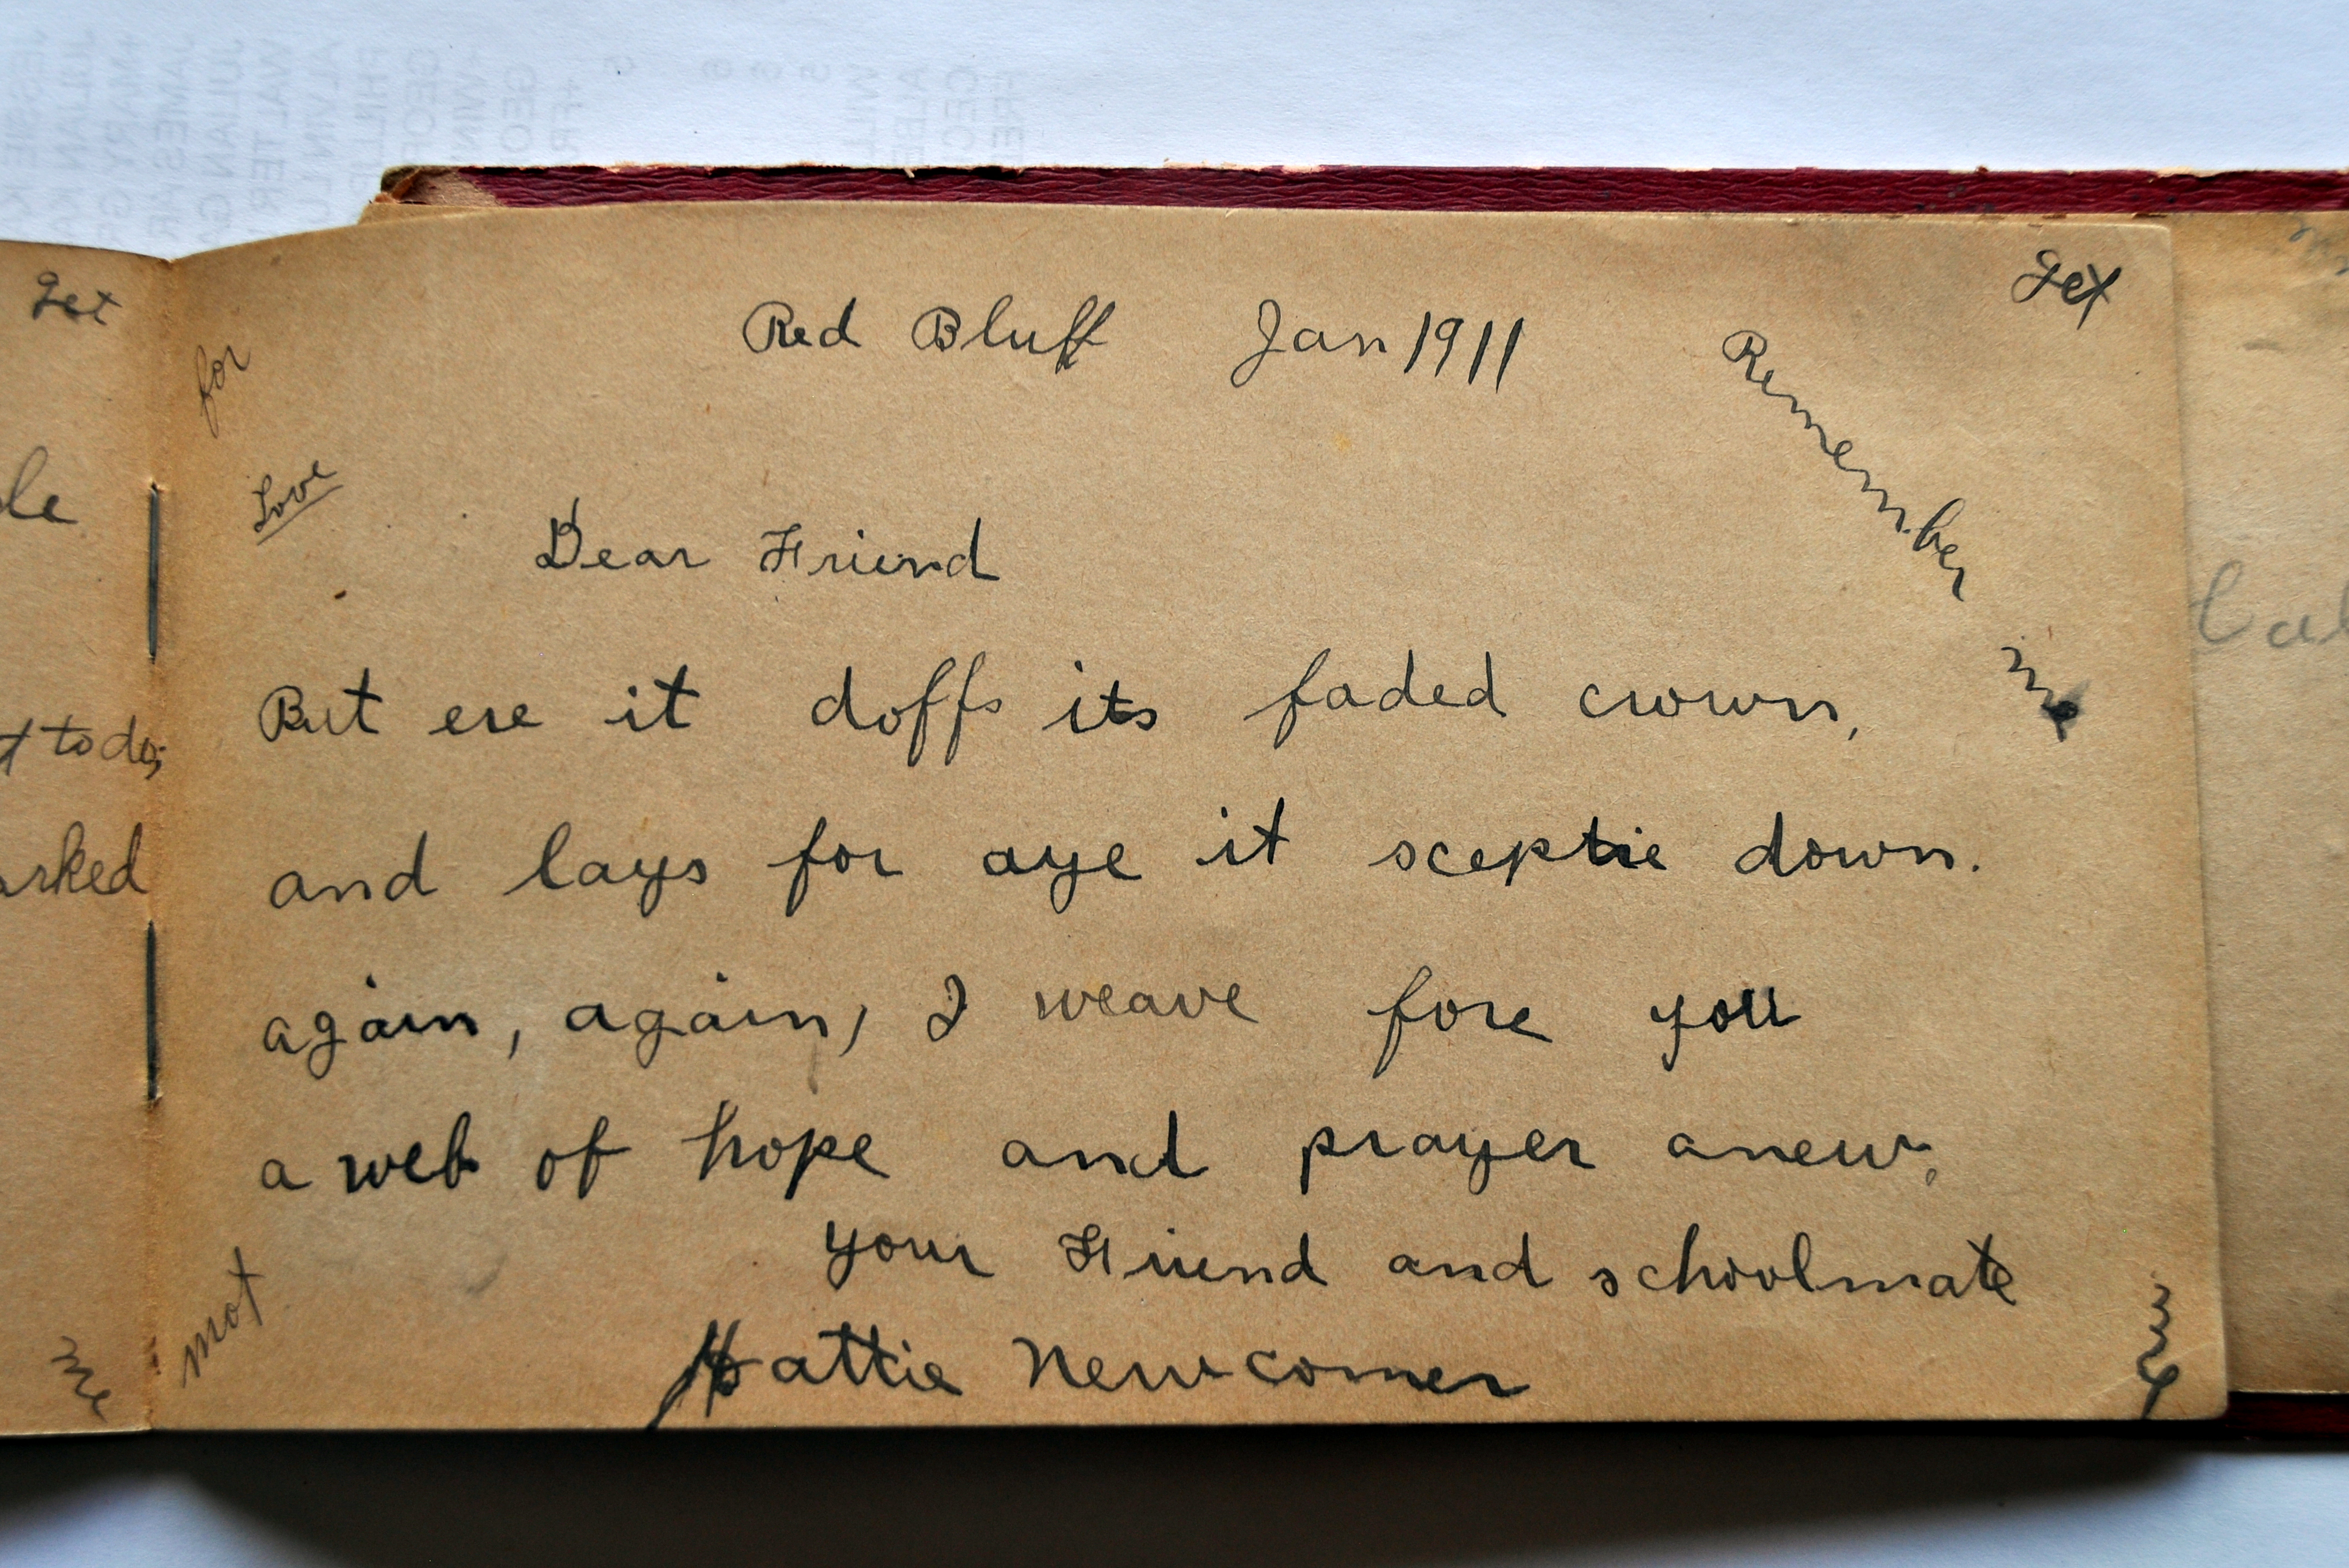 get
for
Red Bluff Jan 1911
get
Love
Remember
me
Dear Friend
But ere it doffs its faded crown,
and lays for aye it sceptre down.
again, again, I weave fore you
a web of hope and prayer anew.
your Friend and schoolmate
Hattie Newcomer
not
me
me
to do;